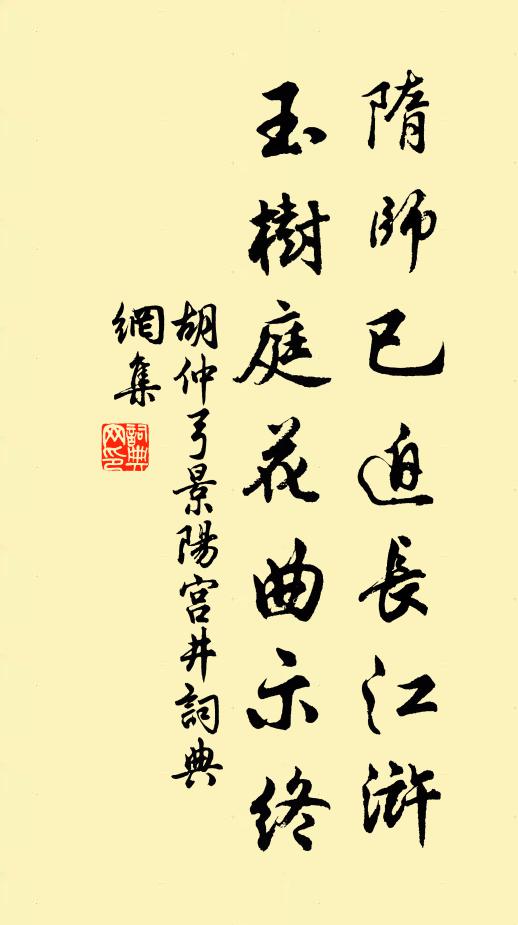 隋師已迫長江滸
玉樹庭花曲示終
胡仲弓景陽宮井詞典
網集
詞典
网印